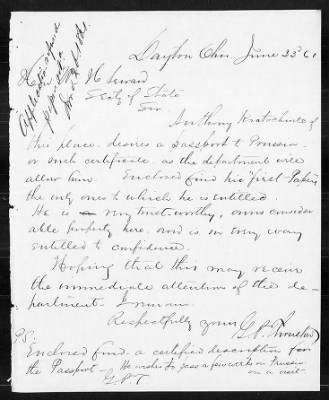 Dayton Ohio June 23^d 61
H Seward
Secty of State
Sir
Anthony Kratochwile of
this place desires a passport to Prussia
or such certificate, as the department will
allow him. Enclosed find his "first-Papers"
the only ones to which he is entitled.
He is very trust-worthy, owns consider
able property here and is in every way
entitled to confidence.
Hoping that this may receive
the immediate attention of the de-
partment I remain
Respectfully yours
G. P. Thruston
P.S.
Enclosed find a certified description for
the Passport - He wishes to pass a few weeks in Prussia
on a visit.
G.P.T